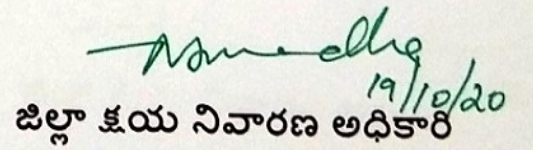 19/10/20
జిల్లా క్షయ నివారణ అధికారి